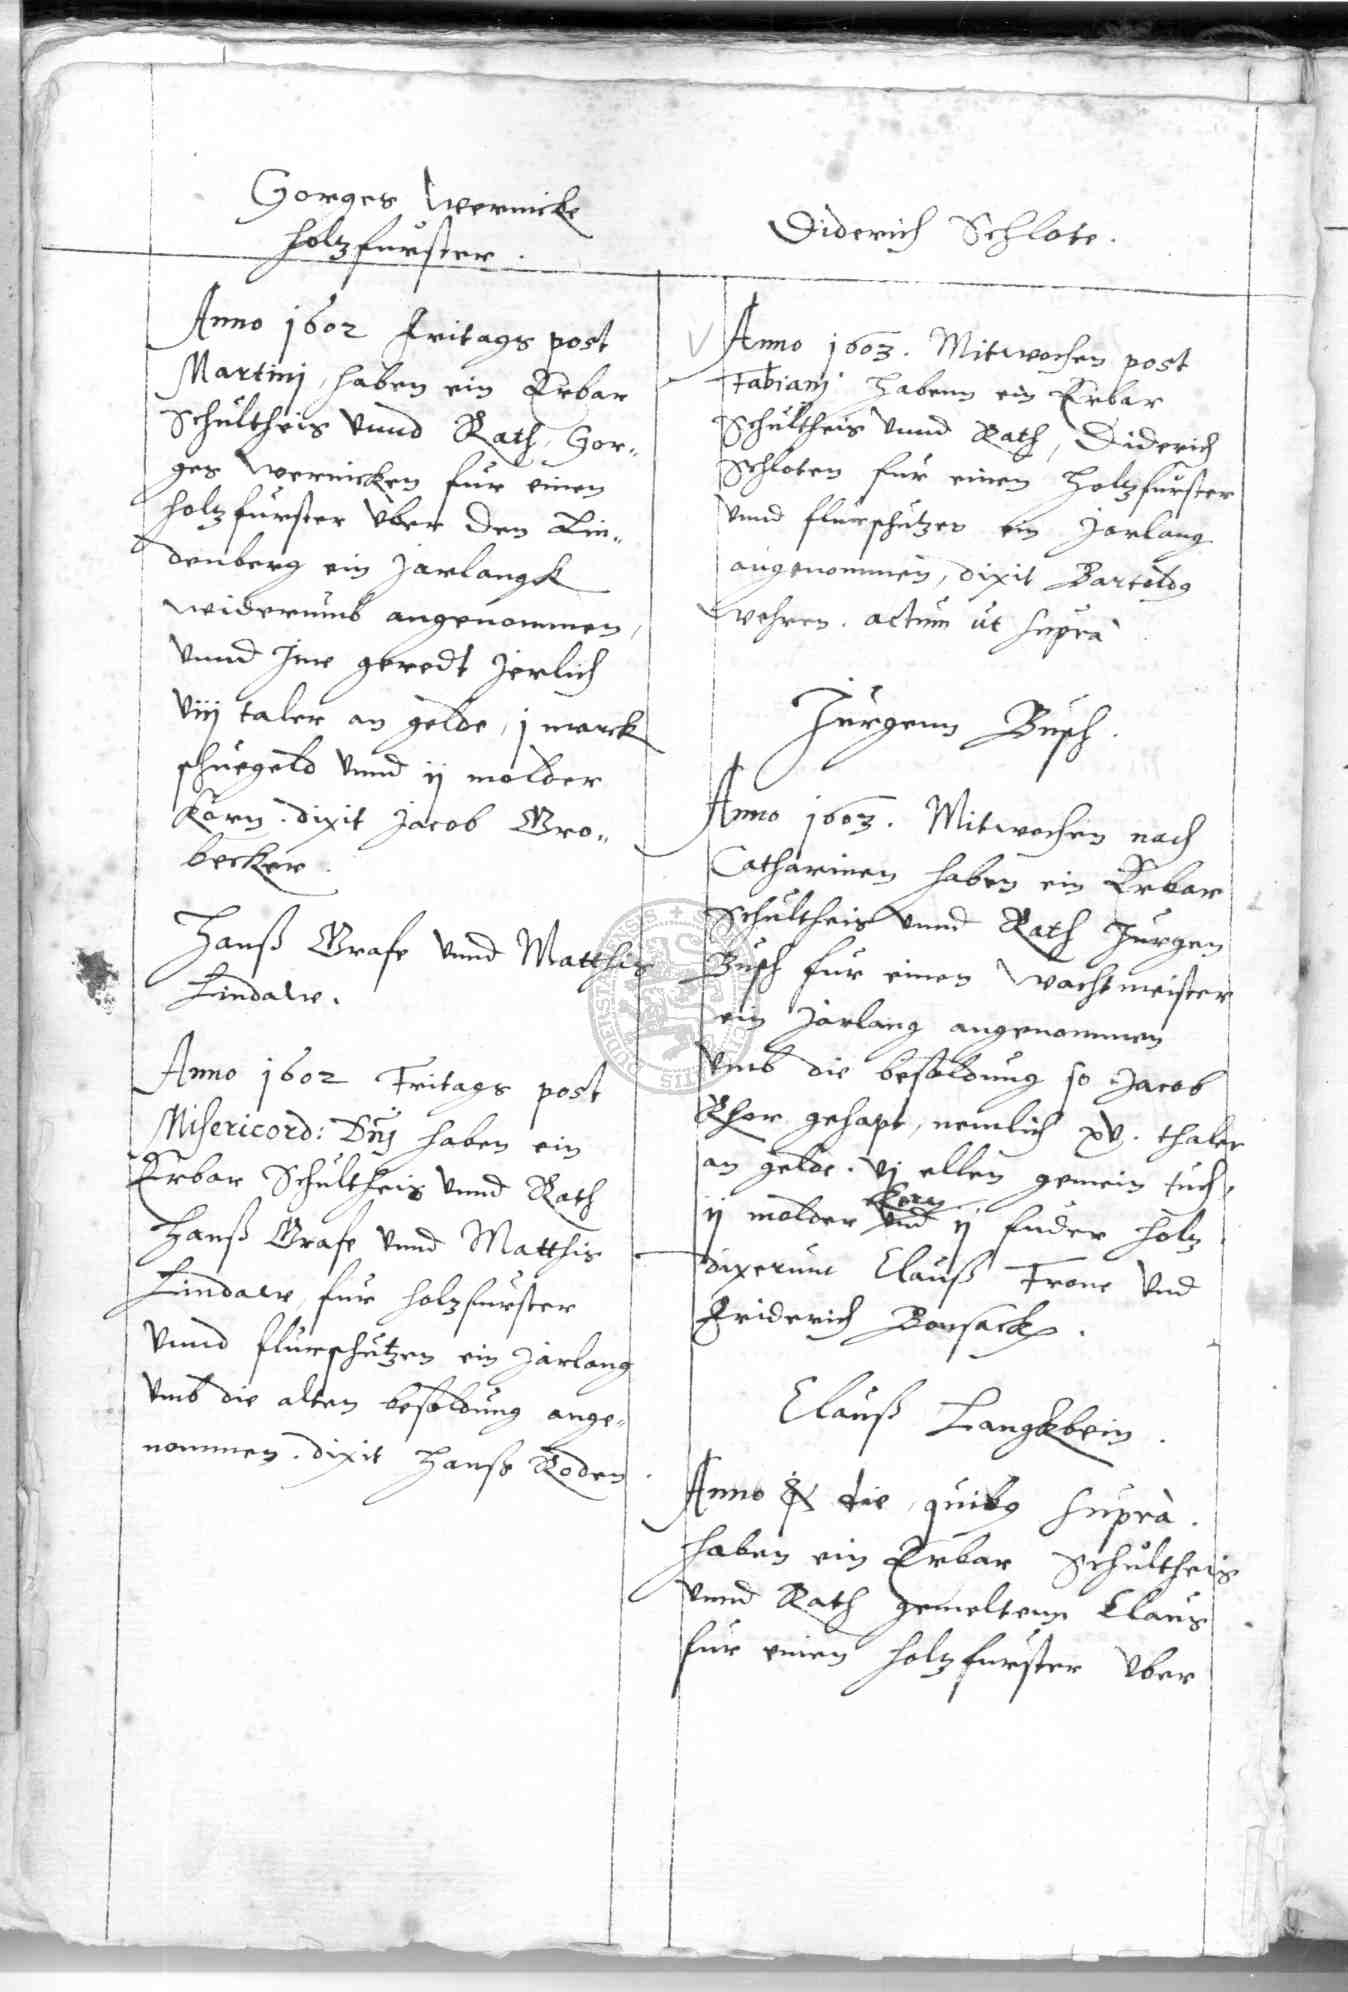 Gorges Wernicke
holtzfurster.
Anno 1602 Fritags post
Martinj, haben ein Erbar
Schultheis vnnd Rath, Gor„
ges Wernicken fur einen
holtzfurster vber den Lin„
denberg ein jarlangk
widerumb angenommen,
vnnd Ime geredt jerlich
viij taler an gelde, j marck
schuegeld vnnd ij molder
Korn. dixit Jacob Gro„
becker.
Hanß Grafe vnnd Matthis
Lindaw.
Anno 1602 Fritags post
Misericord: Dnj haben ein
Erbar Schultheis vnnd Rath
Hanß Grafe vnnd Matthis
Lindaw, fur holtzfurster
vnnd flurschutzen ein jarlang
vmb die alten besoldung ange„
nommen. dixit Hanß Roden.
Diderich Schlote.
Anno 1603. Mitwochen post
Fabianj habenn ein Erbar
Schultheis vnnd Rath, Diderich
Schloten fur einen Holtzfurster
vnnd flurschutzen ein jarlang
angenommen, dixit Bartoldg
Wehren. actum ut supra
Jurgenn Busch.
Anno 1603. Mitwochen nach
Catharinen haben ein Erbar
Schultheis vnnd Rath Jurgen
Busch fur einen Wachtmeister
ein Jarlang angenommen
vmb die besoldung so Jacob
Rhor gehapt, nemlich xv. thaler
an gelde. vj ellen gemein tuch,
ij molder Korn vnd ij fuder holtz.
dixerunt Clauß Trone vnd
Friderich Bonsack.
Clauß Langkbein.
Anno & die, quibg supra.
haben ein Erbar Schultheis
vnnd Rath gemeltenn Claus
fur einen holtzfurster vber